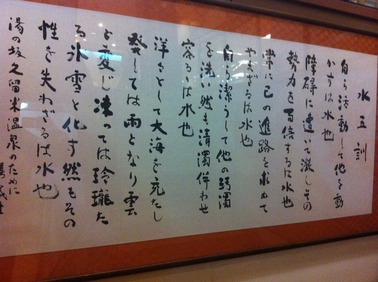 水五訓
自ら活動して他を動
かすは水也
障碍に遭いて激しその
勢力を百倍するは水也
常に己の進路を求めて
やまざるは水也
自ら潔うして他の汚濁
を洗い然も清濁併わせ
容るゝは水也
洋々とし大海を充たし
発しては雨となり雲
と変じ凍っては玲瓏た
る氷雪と化す然もその
性を失わざるは水也
湯の坂久留米温泉のために